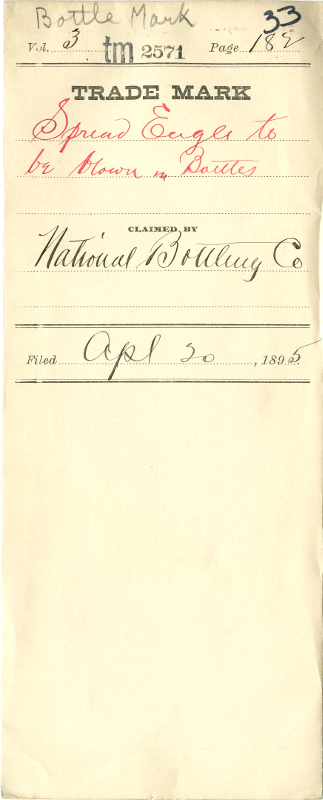 Bottle Mark
33
Vol. 3 tm 2571 Page 182
TRADE MARK
Spread Eagle to
be blown in Bottles
CLAIMED BY
National Bottling Co
Filed Apl 20, 1895